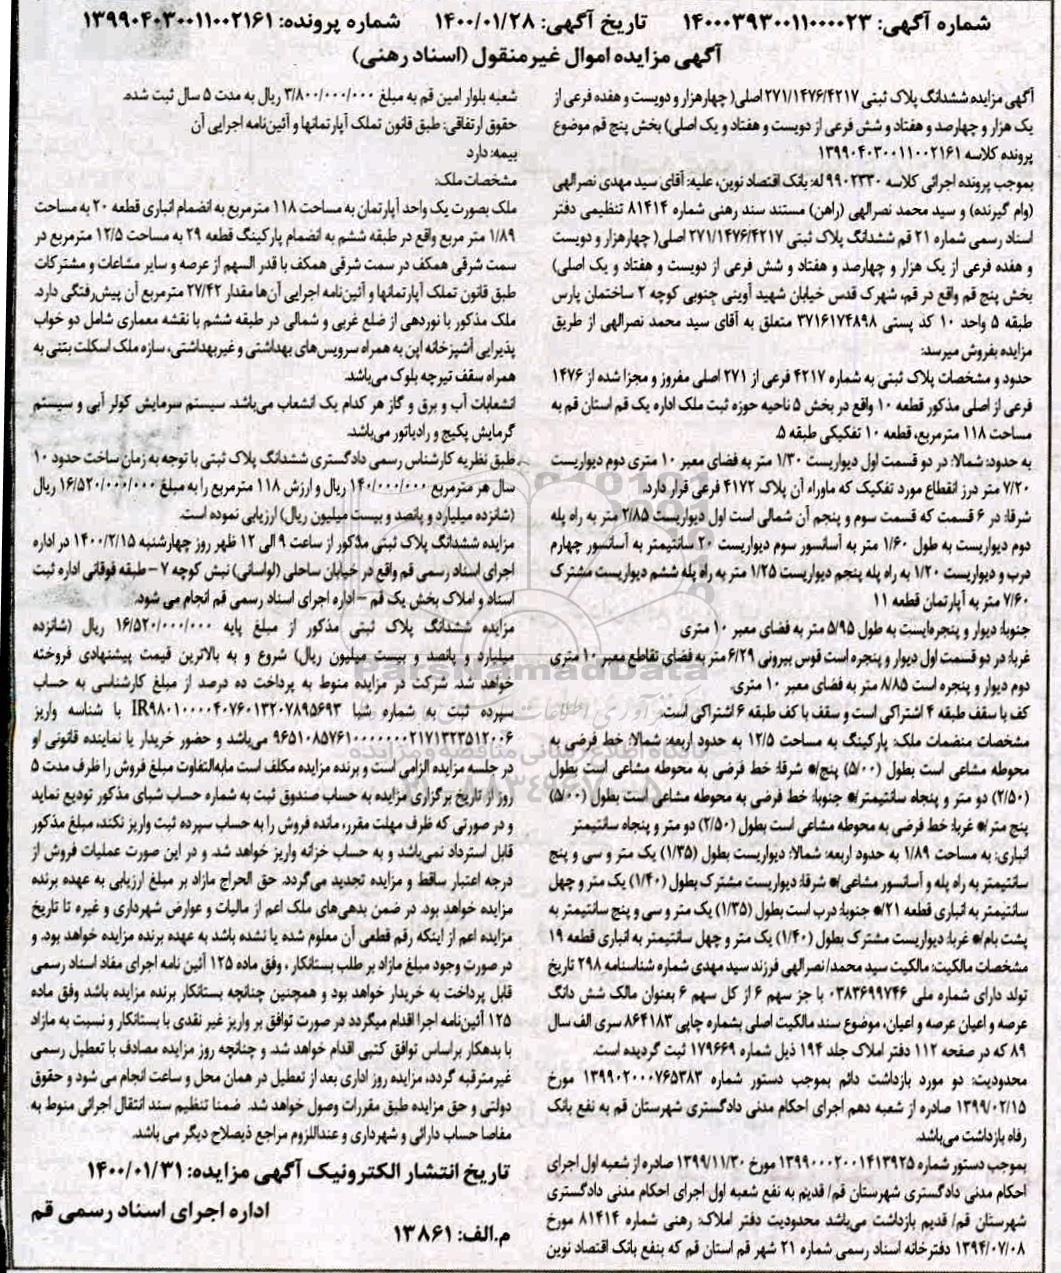 شماره آگهی: ۱۴۰۰۰۳۹۳۰۰۱۱۰۰۰۰۲۳ تاریخ آگهی: ۱۴۰۰/۰۱/۲۸ شماره پرونده: ۱۳۹۹۰۴۰۳۰۰۱۱۰۰۲۱۶۱
آگهی مزایده اموال غیرمنقول (اسناد رهنی)
آگهی مزایده ششدانگ پلاک ثبتی ۲۷۱/۱۴۷۶/۴۲۱۷ اصلی( چهارهزار و دویست و هفده فرعی از
یک هزار و چهارصد و هفتاد و شش فرعی از دویست و هفتاد و یک اصلی) بخش پنج قم موضوع
پرونده کلاسه ۱۳۹۹۰۴۰۳۰۰۱۱۰۰۲۱۶۱
بموجب پرونده اجرائی کلاسه ۹۹۰۲۳۳۰ له: بانک اقتصاد نوین، علیه: آقای سید مهدی نصرالهی
(وام گیرنده) و سید محمد نصرالهی (راهن) مستند سند رهنی شماره ۸۱۴۱۴ تنظیمی دفتر
اسناد رسمی شماره ۲۱ قم ششدانگ پلاک ثبتی ۲۷۱/۱۴۷۶/۴۲۱۷ اصلی( چهارهزار و دویست
و هفده فرعی از یک هزار و چهارصد و هفتاد و شش فرعی از دویست و هفتاد و یک اصلی)
بخش پنج قم واقع در قم، شهرک قدس خیابان شهید آوینی جنوبی کوچه ۲ ساختمان پارس
طبقه ۵ واحد ۱۰ کد پستی ۳۷۱۶۱۷۴۸۹۸ متعلق به آقای سید محمد نصرالهی از طریق
مزایده بفروش میرسد:
حدود و مشخصات پلاک ثبتی به شماره ۴۲۱۷ فرعی از ۲۷۱ اصلی مفروز و مجزا شده از ۱۴۷۶
فرعی از اصلی مذکور قطعه ۱۰ واقع در بخش ۵ ناحیه حوزه ثبت ملک اداره یک قم استان قم به
مساحت ۱۱۸ مترمربع، قطعه ۱۰ تفکیکی طبقه ۵.
به حدود: شمالا: در دو قسمت اول دیواریست ۱/۳۰ متر به فضای معبر ۱۰ متری دوم دیواریست
۷/۲۰ متر درز انقطاع مورد تفکیک که ماوراء آن پلاک ۴۱۷۲ فرعی قرار دارد.
شرقا: در ۶ قسمت که قسمت سوم و پنجم آن شمالی است اول دیواریست ۲/۸۵ متر به راه پله
دوم دیواریست به طول ۱/۶۰ متر به آسانسور سوم دیواریست ۲۰ سانتیمتر به آسانسور چهارم
درب و دیواریست ۱/۲۰ به راه پله پنجم دیواریست ۱/۲۵ متر به راه پله ششم دیواریست مشترک
۷/۶۰ متر به آپارتمان قطعه ۱۱
جنوبا: دیوار و پنجره‌ایست به طول ۵/۹۵ متر به فضای معبر ۱۰ متری
غربا: در دو قسمت اول دیوار و پنجره است قوس بیرونی ۶/۲۹ متر به فضای تقاطع معبر ۱۰ متری
دوم دیوار و پنجره است ۸/۸۵ متر به فضای معبر ۱۰ متری.
کف با سقف طبقه ۴ اشتراکی است و سقف با کف طبقه ۶ اشتراکی است.
مشخصات منضمات ملک: پارکینگ به مساحت ۱۲/۵ به حدود اربعه: شمالا: خط فرضی به
محوطه مشاعی است بطول (۵/۰۰) پنج/* شرقا: خط فرضی به محوطه مشاعی است بطول
(۲/۵۰) دو متر و پنجاه سانتیمتر/* جنوبا: خط فرضی به محوطه مشاعی است بطول (۵/۰۰)
پنج متر/* غربا: خط فرضی به محوطه مشاعی است بطول (۲/۵۰) دو متر و پنجاه سانتیمتر
انباری: به مساحت ۱/۸۹ به حدود اربعه: شمالا: دیواریست بطول (۱/۳۵) یک متر و سی و پنج
سانتیمتر به راه پله و آسانسور مشاعی/* شرقا: دیواریست مشترک بطول (۱/۴۰) یک متر و چهل
سانتیمتر به انباری قطعه ۲۱/* جنوبا: درب است بطول (۱/۳۵) یک متر و سی و پنج سانتیمتر به
پشت بام/* غربا: دیواریست مشترک بطول (۱/۴۰) یک متر و چهل سانتیمتر به انباری قطعه ۱۹
مشخصات مالکیت: مالکیت سید محمد/ نصرالهی فرزند سید مهدی شماره شناسنامه ۲۹۸ تاریخ
تولد دارای شماره ملی ۰۳۸۳۶۹۹۷۴۶ با جز سهم ۶ از کل سهم ۶ بعنوان مالک شش دانگ
عرصه و اعیان عرصه و اعیان، موضوع سند مالکیت اصلی بشماره چاپی ۸۶۴۱۸۳ سری الف سال
۸۹ که در صفحه ۱۱۲ دفتر املاک جلد ۱۹۴ ذیل شماره ۱۷۹۶۶۹ ثبت گردیده است.
محدودیت: دو مورد بازداشت دائم بموجب دستور شماره ۱۳۹۹۰۲۰۰۰۷۶۵۳۸۳ مورخ
۱۳۹۹/۰۲/۱۵ صادره از شعبه دهم اجرای احکام مدنی دادگستری شهرستان قم به نفع بانک
رفاه بازداشت می‌باشد.
بموجب دستور شماره ۱۳۹۹۰۰۰۲۰۰۱۴۱۳۹۲۵ مورخ ۱۳۹۹/۱۱/۳۰ صادره از شعبه اول اجرای
احکام مدنی دادگستری شهرستان قم/ قدیم به نفع شعبه اول اجرای احکام مدنی دادگستری
شهرستان قم/ قدیم بازداشت می‌باشد محدودیت دفتر املاک: رهنی شماره ۸۱۴۱۴ مورخ
۱۳۹۴/۰۷/۰۸ دفترخانه اسناد رسمی شماره ۲۱ شهر قم استان قم که بنفع بانک اقتصاد نوین
شعبه بلوار امین قم به مبلغ ۳/۸۰۰/۰۰۰/۰۰۰ ریال به مدت ۵ سال ثبت شده.
حقوق ارتفاقی: طبق قانون تملک آپارتمانها و آئین‌نامه اجرایی آن
بیمه: دارد
مشخصات ملک:
ملک بصورت یک واحد آپارتمان به مساحت ۱۱۸ مترمربع به انضمام انباری قطعه ۲۰ به مساحت
۱/۸۹ متر مربع واقع در طبقه ششم به انضمام پارکینگ قطعه ۲۹ به مساحت ۱۲/۵ مترمربع در
سمت شرقی همکف در سمت شرقی همکف با قدر السهم از عرصه و سایر مشاعات و مشترکات
طبق قانون تملک آپارتمانها و آئین‌نامه اجرایی آن‌ها مقدار ۲۷/۴۲ مترمربع آن پیش‌رفتگی دارد.
ملک مذکور با نوردهی از ضلع غربی و شمالی در طبقه ششم با نقشه معماری شامل دو خواب
پذیرایی آشپزخانه اپن به همراه سرویس‌های بهداشتی و غیربهداشتی، سازه ملک اسکلت بتنی به
همراه سقف تیرچه بلوک می‌باشد.
انشعابات آب و برق و گاز هر کدام یک انشعاب می‌باشد. سیستم سرمایش کولر آبی و سیستم
گرمایش پکیج و رادیاتور می‌باشد.
طبق نظریه کارشناس رسمی دادگستری ششدانگ پلاک ثبتی با توجه به زمان ساخت حدود ۱۰
سال هر مترمربع ۱۴۰/۰۰۰/۰۰۰ ریال و ارزش ۱۱۸ مترمربع را به مبلغ ۱۶/۵۲۰/۰۰۰/۰۰۰ ریال
(شانزده میلیارد و پانصد و بیست میلیون ریال) ارزیابی نموده است.
مزایده ششدانگ پلاک ثبتی مذکور از ساعت ۹ الی ۱۲ ظهر روز چهارشنبه ۱۴۰۰/۲/۱۵ در اداره
اجرای اسناد رسمی قم واقع در خیابان ساحلی (لواسانی) نبش کوچه ۷ – طبقه فوقانی اداره ثبت
اسناد و املاک بخش یک قم – اداره اجرای اسناد رسمی قم انجام می شود.
مزایده ششدانگ پلاک ثبتی مذکور از مبلغ پایه ۱۶/۵۲۰/۰۰۰/۰۰۰ ریال (شانزده
میلیارد و پانصد و بیست میلیون ریال) شروع و به بالاترین قیمت پیشنهادی فروخته
خواهد شد. شرکت در مزایده منوط به پرداخت ده درصد از مبلغ کارشناسی به حساب
سپرده ثبت به شماره شبا IR۹۸۰۱۰۰۰۰۴۰۷۶۰۱۳۲۰۷۸۹۵۶۹۳ با شناسه واریز
۹۶۵۱۰۸۵۷۶۱۰۰۰۰۰۰۰۲۱۷۱۳۲۳۵۱۲۰۰۶ می‌باشد و حضور خریدار یا نماینده قانونی او
در جلسه مزایده الزامی است و برنده مزایده مکلف است مابه‌التفاوت مبلغ فروش را ظرف مدت ۵
روز از تاریخ برگزاری مزایده به حساب صندوق ثبت به شماره حساب شبای مذکور تودیع نماید
و در صورتی که ظرف مهلت مقرر، مانده فروش را به حساب سپرده ثبت واریز نکند، مبلغ مذکور
قابل استرداد نمی‌باشد و به حساب خزانه واریز خواهد شد. و در این صورت عملیات فروش از
درجه اعتبار ساقط و مزایده تجدید می‌گردد. حق الحراج مازاد بر مبلغ ارزیابی به عهده برنده
مزایده خواهد بود. در ضمن بدهی‌های ملک اعم از مالیات و عوارض شهرداری و غیره تا تاریخ
مزایده اعم از اینکه رقم قطعی آن معلوم شده یا نشده باشد به عهده برنده مزایده خواهد بود. و
در صورت وجود مبلغ مازاد بر طلب بستانکار ، وفق ماده ۱۲۵ آئین نامه اجرای مفاد اسناد رسمی
قابل پرداخت به خریدار خواهد بود و همچنین چنانچه بستانکار برنده مزایده باشد وفق ماده
۱۲۵ آئین‌نامه اجرا اقدام میگردد در صورت توافق بر واریز غیر نقدی با بستانکار و نسبت به مازاد
با بدهکار براساس توافق کتبی اقدام خواهد شد. و چنانچه روز مزایده مصادف با تعطیل رسمی
غیرمترقبه گردد، مزایده روز اداری بعد از تعطیل در همان محل و ساعت انجام می شود و حقوق
دولتی و حق مزایده طبق مقررات وصول خواهد شد. ضمنا تنظیم سند انتقال اجرائی منوط به
مفاصا حساب دارائی و شهرداری و عنداللزوم مراجع ذیصلاح دیگر می باشد.
تاریخ انتشار الکترونیک آگهی مزایده: ۱۴۰۰/۰۱/۳۱
اداره اجرای اسناد رسمی قم
م.الف: ۱۳۸۶۱
ParsNamadData